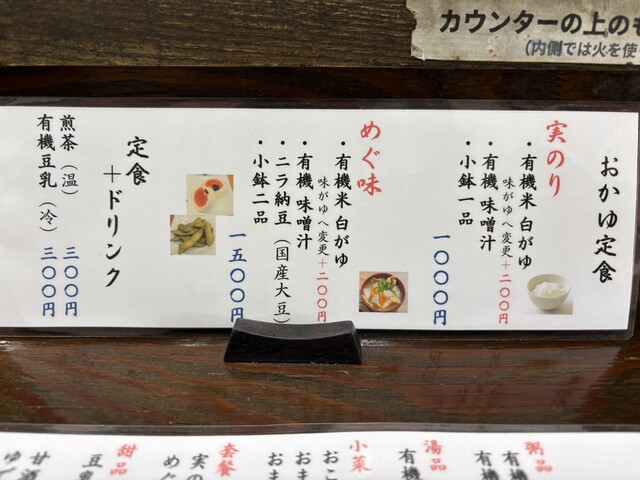 カウンターの上のも
（内側では火を使
おかゆ定食
実のり
・有機米 白がゆ
味がゆへ変更＋二〇〇円
・有機 味噌汁
・小鉢一品
一〇〇〇円
めぐ味
・有機米 白がゆ
味がゆへ変更＋二〇〇円
・有機 味噌汁
・ニラ納豆（国産大豆）
・小鉢二品
一五〇〇円
定食
＋ドリンク
煎茶（温） 三〇〇円
有機豆乳（冷） 三〇〇円
粥品
有機
有機
湯品
有機
小菜
おこ
おま
おま
套餐
実の
めぐ
甜品
豆乳
甘酒
ゆで